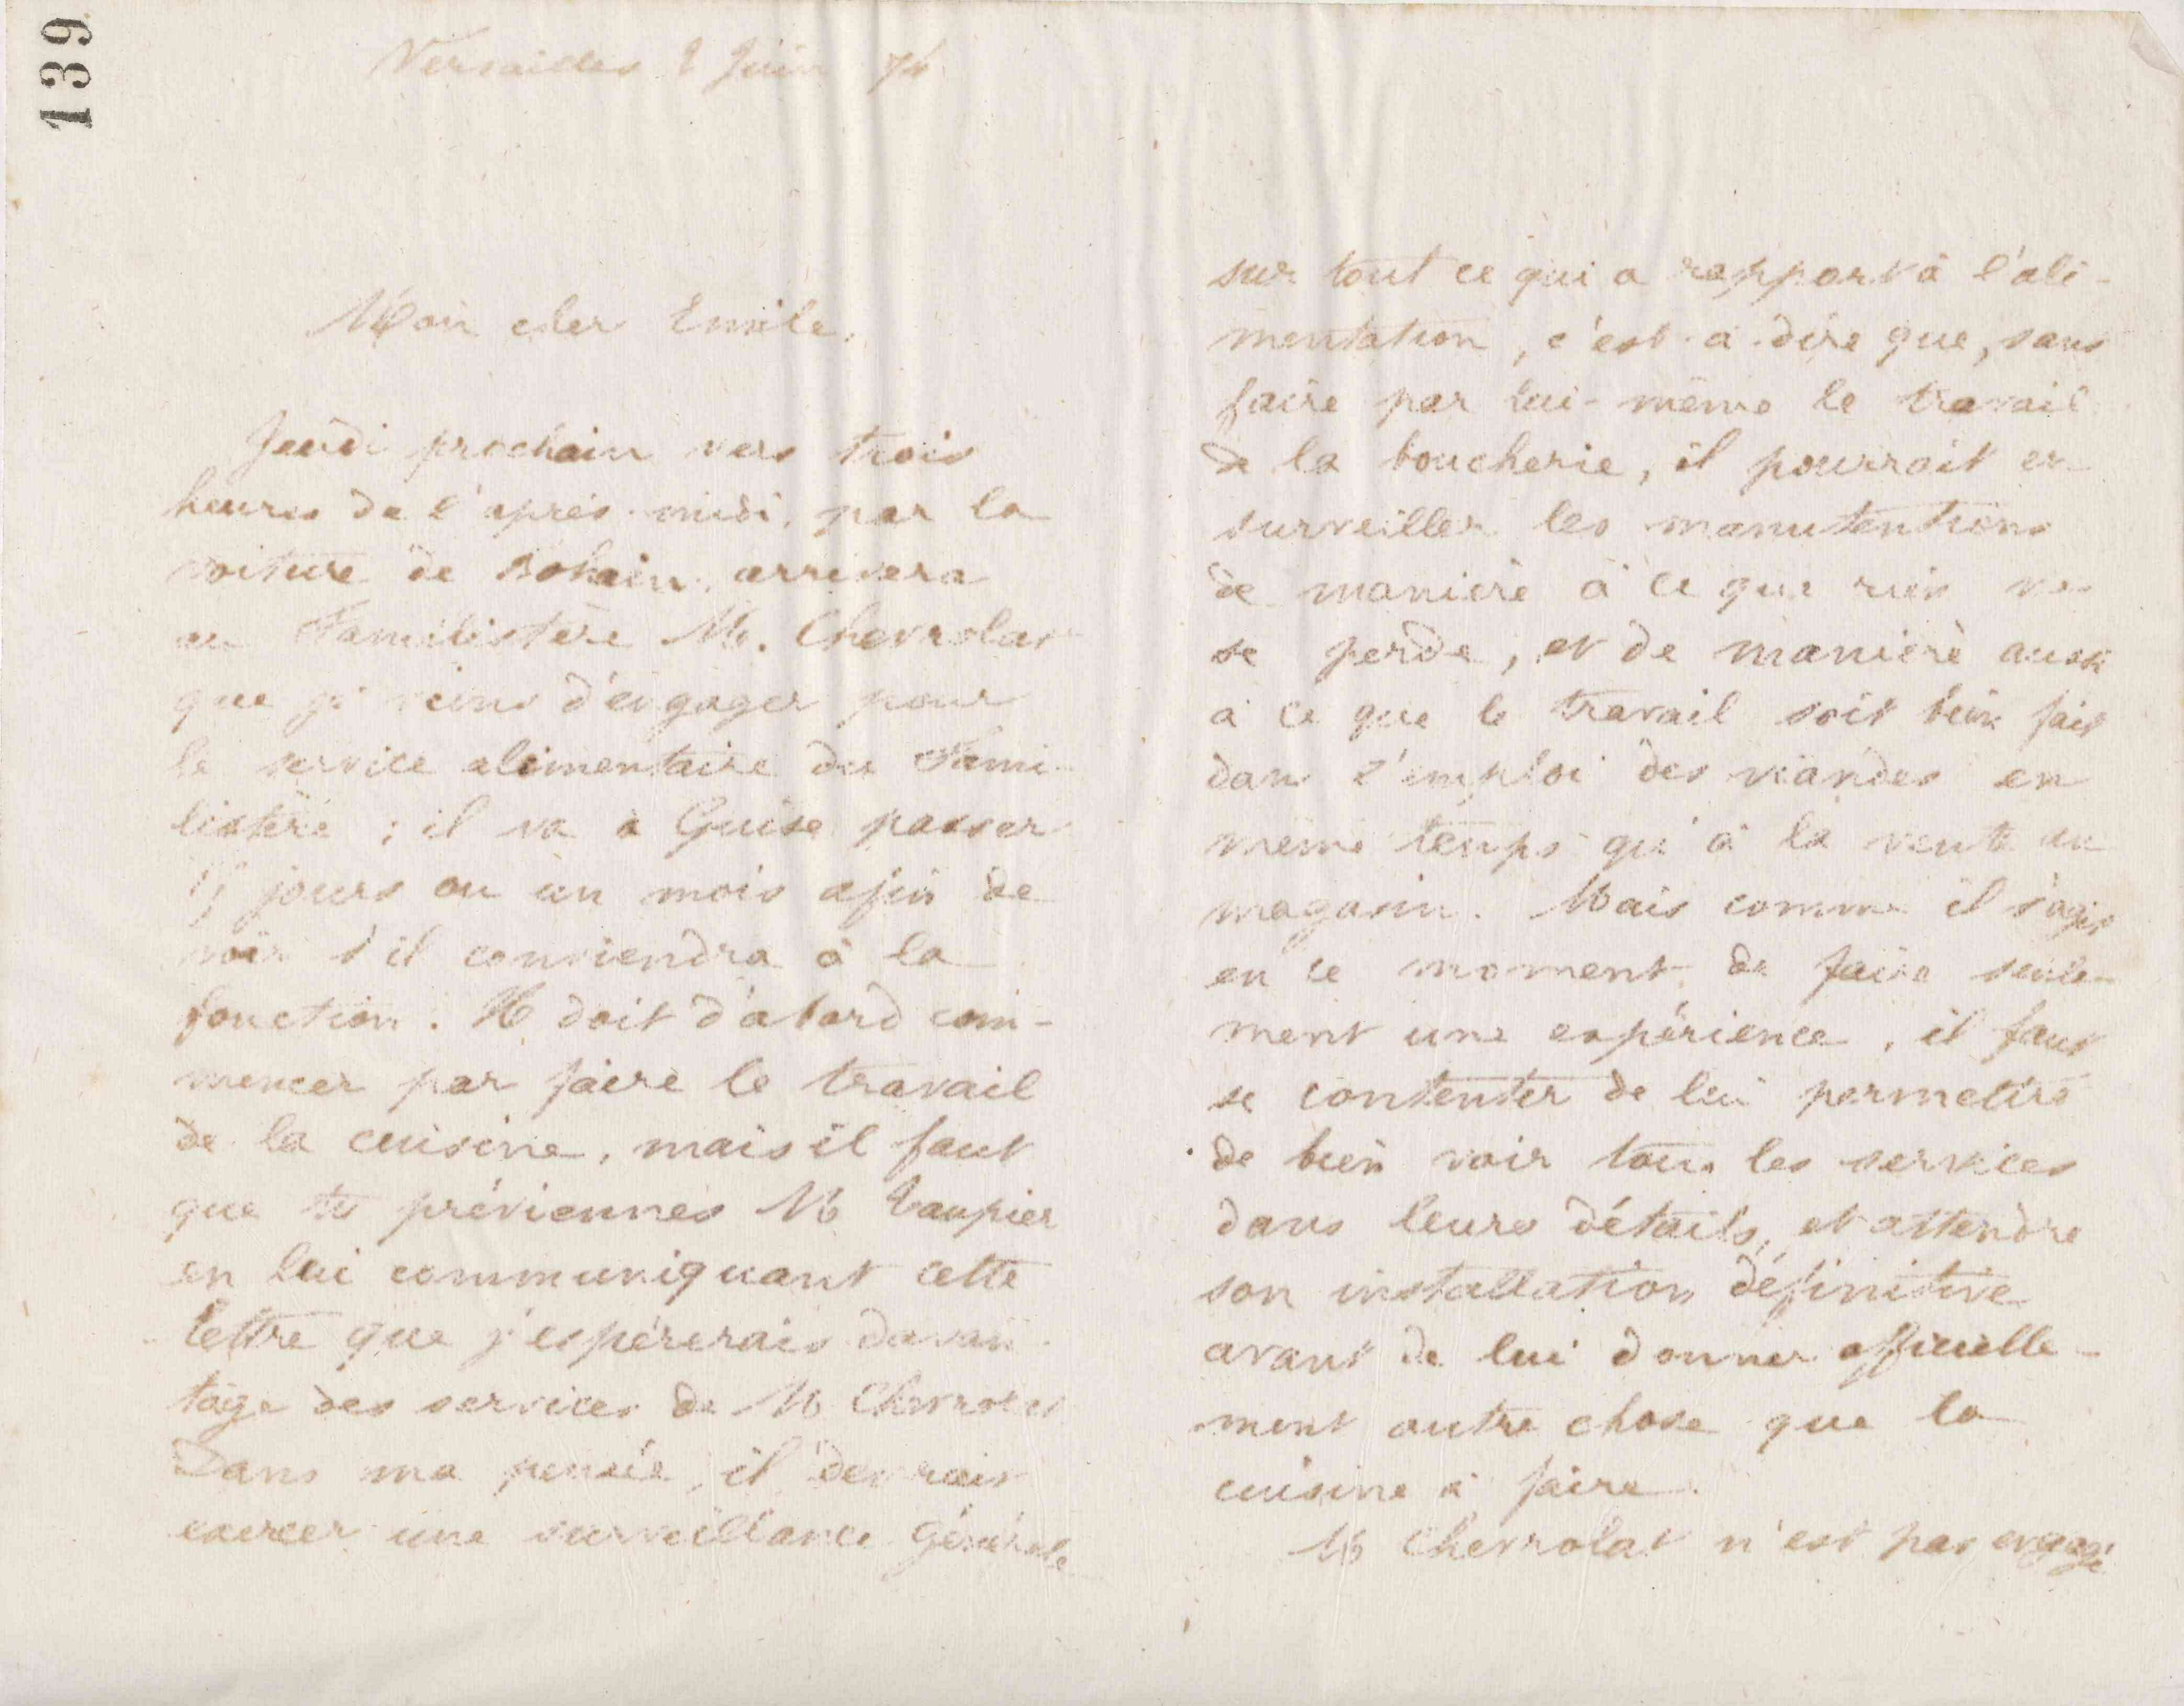 139
Versailles 2 Juin 74
Mon cher Emile,
Jeudi prochain vers trois
heures de l'après-midi, par la
voiture de Bohain, arrivera
au Familistère M. Chevrolat
que je viens d'engager pour
le service alimentaire du Fami-
listère ; il va à Guise passer
15 jours ou un mois afin de
voir s'il conviendra à la
fonction. Il doit d'abord com-
mencer par faire le travail
de la cuisine, mais il faut
que tu préviennes M
en lui communiquant cette
lettre que j'espérerais davan-
tage des services de M Chevrolat
Dans ma pensée, il devrait
exercer une surveillance générale
sur tout ce qui a rapport à l'ali-
mentation, c'est-à-dire que, sans
faire par lui-même le travail
de la boucherie, il pourrait en
surveiller les manutentions
de manière à ce que rien ne
se perde, et de manière aussi
à ce que le travail soit bien fait
dans l'emploi des viandes en
même temps qu'à la vente au
magasin. Mais comme il s'agit
en ce moment de faire seule-
ment une expérience, il faut
se contenter de lui permettre
de bien voir tous les services
dans leurs détails, et attendre
son installation définitive
avant de lui donner officielle-
ment autre chose que la
cuisine à faire.
M Chevrolat n'est pas engagé